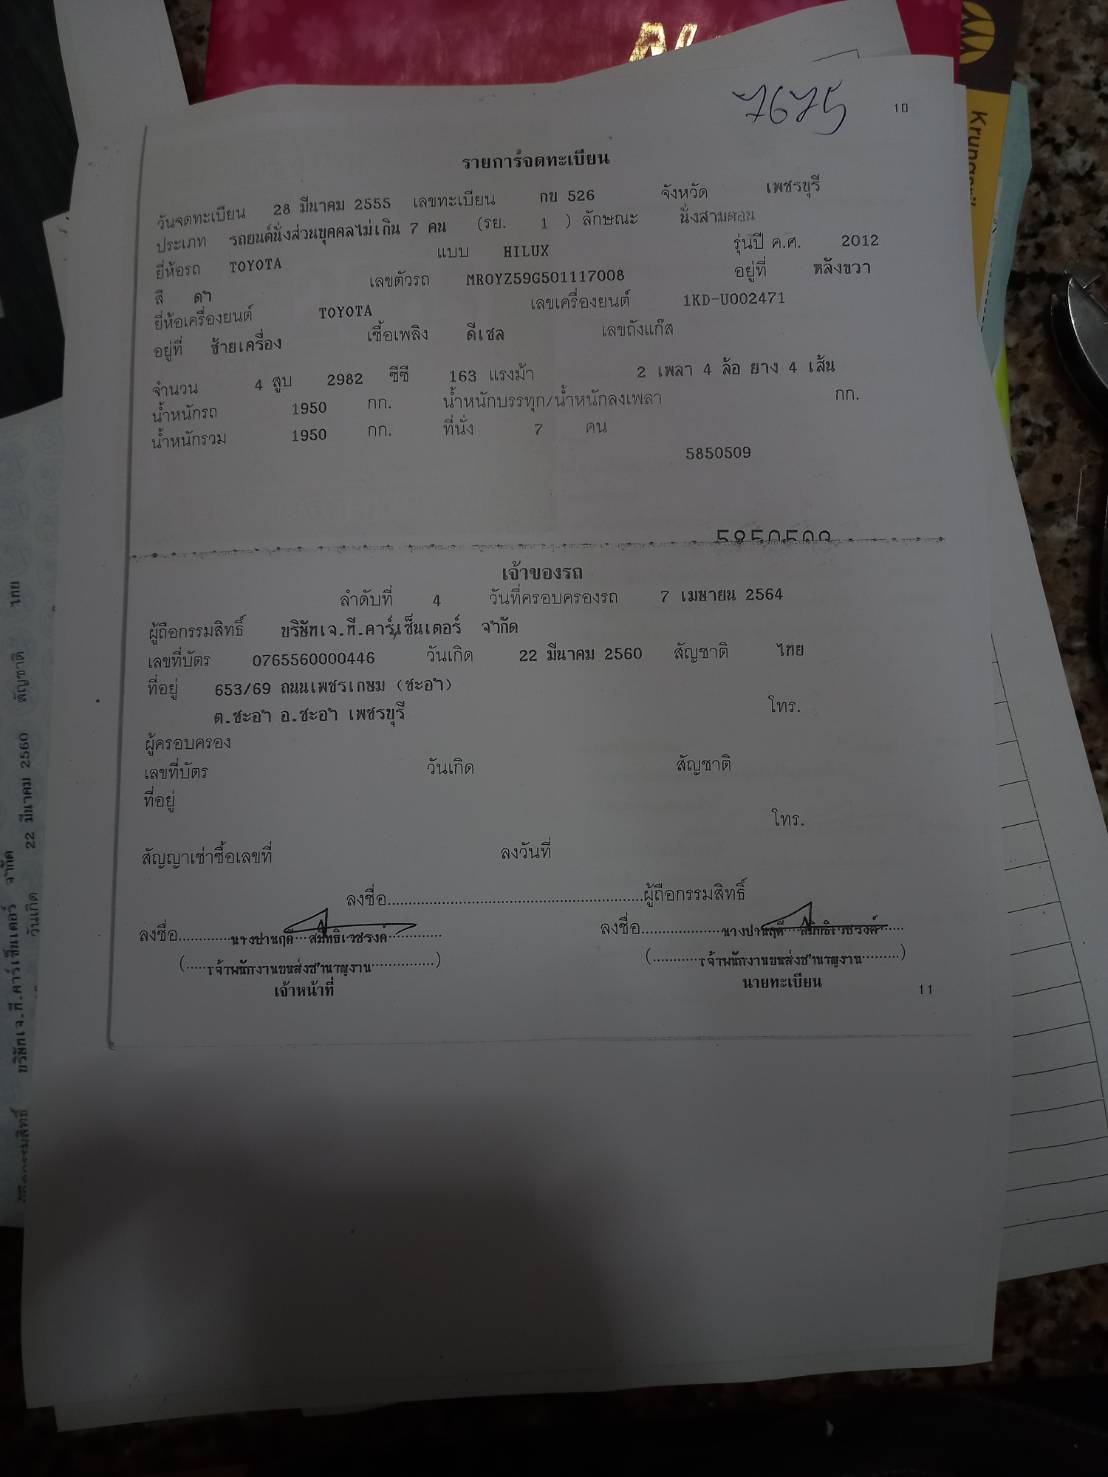 7675
10
รายการจดทะเบียน
วันจดทะเบียน 28 มีนาคม 2555 เลขทะเบียน กข 526 จังหวัด เพชรบุรี
ประเภท รถยนต์นั่งส่วนบุคคลไม่เกิน 7 คน (รย. 1 ) ลักษณะ นั่งสามตอน
ยี่ห้อรถ TOYOTA แบบ HILUX รุ่นปี ค.ศ. 2012
สี ดำ เลขตัวรถ MR0YZ59G501117008 อยู่ที่ หลังขวา
ยี่ห้อเครื่องยนต์ TOYOTA เลขเครื่องยนต์ 1KD-U002471
อยู่ที่ ซ้ายเครื่อง เชื้อเพลิง ดีเซล เลขถังแก๊ส
จำนวน 4 สูบ 2982 ซีซี 163 แรงม้า 2 เพลา 4 ล้อ ยาง 4 เส้น
น้ำหนักรถ 1950 กก. น้ำหนักบรรทุก/น้ำหนักลงเพลา กก.
น้ำหนักรวม 1950 กก. ที่นั่ง 7 คน
5850509
5850509
เจ้าของรถ
ลำดับที่ 4 วันที่ครอบครองรถ 7 เมษายน 2564
ผู้ถือกรรมสิทธิ์ บริษัทเจ.ที.คาร์เซ็นเตอร์ จำกัด
เลขที่บัตร 0765560000446 วันเกิด 22 มีนาคม 2560 สัญชาติ ไทย
ที่อยู่ 653/69 ถนนเพชรเกษม (ชะอำ)
ต.ชะอำ อ.ชะอำ เพชรบุรี โทร.
ผู้ครอบครอง
เลขที่บัตร วันเกิด สัญชาติ
ที่อยู่
โทร.
สัญญาเช่าซื้อเลขที่ ลงวันที่
ลงชื่อ ผู้ถือกรรมสิทธิ์
ลงชื่อ นางปานฤดี สมิทธิเวชรงค์ ลงชื่อ นางปานฤดี สมิทธิเวชรงค์
( เจ้าพนักงานขนส่งชำนาญงาน ) ( เจ้าพนักงานขนส่งชำนาญงาน )
เจ้าหน้าที่ นายทะเบียน
11
บริษัทเจ.ที.คาร์เซ็นเตอร์ จำกัด
วันเกิด 22 มีนาคม 2560 สัญชาติ ไทย